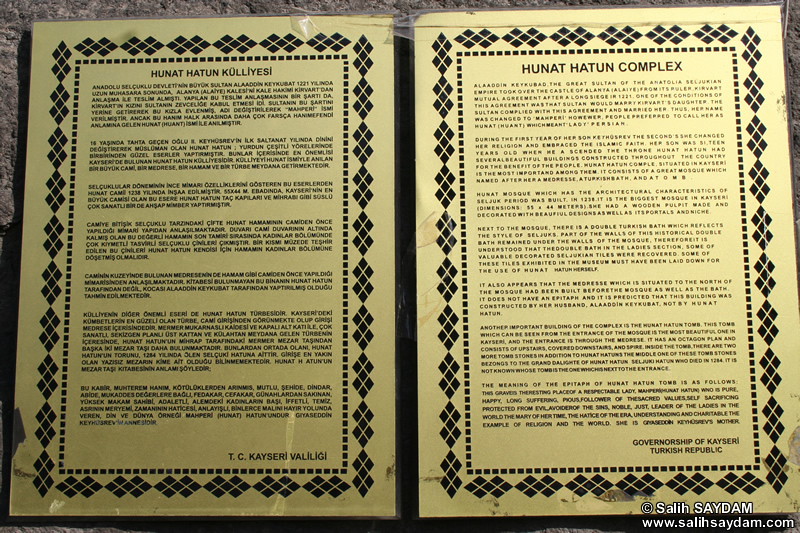 HUNAT HATUN KÜLLİYESİ
ANADOLU SELÇUKLU DEVLETİ'NİN BÜYÜK SULTAN ALAADDİN KEYKUBAT 1221 YILINDA
UZUN MUHASARA SONUNDA, ALANYA (ALAİYE) KALESİ'Nİ KALE HAKİMİ KİRVART'DAN
ANLAŞMA İLE TESLİM ALMIŞTI. YAPILAN BU TESLİM ANLAŞMASININ BİR ŞARTI DA,
KİRVART'IN KIZINI SULTANIN ZEVCELİĞE KABUL ETMESİ İDİ. SULTANIN BU ŞARTINI
YERİNE GETİREREK BU KIZLA EVLENMİŞ, ADI DEĞİŞTİRİLEREK "MAHPERİ" İSMİ
VERİLMİŞTİR. ANCAK BU HANIM HALK ARASINDA DAHA ÇOK FARSÇA HANIMEFENDİ
ANLAMINA GELEN HUNAT (HUANT) İSMİ İLE ANILMIŞTIR.
16 YAŞINDA TAHTA GEÇEN OĞLU II. KEYHÜSREV'İN İLK SALTANAT YILINDA DİNİNİ
DEĞİŞTİREREK MÜSLÜMAN OLAN HUNAT HATUN ; YURDUN ÇEŞİTLİ YÖRELERİNDE
BİRBİRİNDEN GÜZEL ESERLER YAPTIRMIŞTIR. BUNLAR İÇERİSİNDE EN ÖNEMLİSİ
KAYSERİ'DE BULUNAN HUNAT HATUN KÜLLİYESİDİR. KÜLLİYEYİ HUNAT İSMİYLE ANILAN
BİR BÜYÜK CAMİ, BİR MEDRESE, BİR HAMAM VE BİR TÜRBE MEYDANA GETİRMEKTEDİR.
SELÇUKLULAR DÖNEMİNİN İNCE MİMARİ ÖZELLİKLERİNİ GÖSTEREN BU ESERLERDEN
HUNAT CAMİ 1238 YILINDA İNŞAA EDİLMİŞTİR. 55X44 M. EBADINDA, KAYSERİ'NİN EN
BÜYÜK CAMİSİ OLAN BU ESERE HUNAT HATUN TAÇ KAPILARI VE MİHRABI GİBİ SÜSLÜ
ÇOK SANATLI BİR DE AHŞAP MİMBER YAPTIRMIŞTIR.
CAMİYE BİTİŞİK SELÇUKLU TARZINDAKİ ÇİFTE HUNAT HAMAMININ CAMİDEN ÖNCE
YAPILDIĞI MİMARİ YAPIDAN ANLAŞILMAKTADIR. DUVARI CAMİ DUVARININ ALTINDA
KALMIŞ OLAN BU DEĞERLİ HAMAMIN SON TAMİRİ SIRASINDA KADINLAR BÖLÜMÜNDE
ÇOK KIYMETLİ TASVİRLİ SELÇUKLU ÇİNİLERİ ÇIKMIŞTIR. BİR KISMI MÜZEDE TEŞHİR
EDİLEN BU ÇİNİLERİ HUNAT HATUN KENDİSİ İÇİN HAMAMIN KADINLAR BÖLÜMÜNE
DÖŞETMİŞ OLMALIDIR.
CAMİNİN KUZEYİNDE BULUNAN MEDRESENİN DE HAMAM GİBİ CAMİDEN ÖNCE YAPILDIĞI
MİMARİSİNDEN ANLAŞILMAKTADIR. KİTABESİ BULUNMAYAN BU BİNANIN HUNAT HATUN
TARAFINDAN DEĞİL, KOCASI ALAADDİN KEYKUBAT TARAFINDAN YAPTIRILMIŞ OLDUĞU
TAHMİN EDİLMEKTEDİR.
KÜLLİYENİN DİĞER ÖNEMLİ ESERİ DE HUNAT HATUN TÜRBESİDİR. KAYSERİ'DEKİ
KÜMBETLERİN EN GÜZELİ OLAN TÜRBE, CAMİ GİRİŞİNDEN GÖRÜNMEKTE OLUP GİRİŞİ
MEDRESE İÇERİSİNDEDİR. MERMER MUKARNASLI KAİDESİ VE KAPALI ALT KATI İLE, ÇOK
SANATLI, SEKİZGEN PLANLI ÜST KATTAN VE KÜLAHTAN MEYDANA GELEN TÜRBENİN
İÇERESİNDE, HUNAT HATUN'UN MİHRAP TARAFINDAKİ MERMER MEZAR TAŞINDAN
BAŞKA İKİ MEZAR TAŞI DAHA BULUNMAKTADIR. BUNLARDAN ORTADA OLANI, HUNAT
HATUN'UN TORUNU, 1284 YILINDA ÖLEN SELÇUKİ HATUNA AİTTİR. GİRİŞE EN YAKIN
OLAN YAZISIZ MEZARIN KİME AİT OLDUĞU BİLİNMEMEKTEDİR. HUNAT H ATUN'UN
MEZAR TAŞI KİTABESİNİN ANLAMI ŞÖYLEDİR;
BU KABİR, MUHTEREM HANIM, KÖTÜLÜKLERDEN ARINMIŞ, MUTLU, ŞEHİDE, DİNDAR,
ABİDE, MUKADDES DEĞERLERE BAĞLI, FEDAKAR, CEFAKAR, GÜNAHLARDAN SAKINAN,
YÜKSEK MAKAM SAHİBİ, ADALETLİ, ALEMDEKİ KADINLARIN BAŞI, İFFETLİ, TEMİZ,
ASRININ MERYEMİ, ZAMANININ HATİCESİ, ANLAYIŞLI, BİNLERCE MALINI HAYIR YOLUNDA
VEREN, DİN VE DÜNYA ÖRNEĞİ MAHPERİ (HUNAT) HATUN'UNDUR. GIYASEDDİN
KEYHÜSREV'İN ANNESİDİR.
T. C. KAYSERİ VALİLİĞİ
HUNAT HATUN COMPLEX
ALAADDİN KEYKUBAD,THE GREAT SULTAN OF THE ANATOLIA SELJUKIAN
EMPIRE TOOK OVER THE CASTLE OF ALANYA (ALAIYE) FROM ITS RULER, KIRVART
MUTUAL AGREEMENT AFTER A LONG SIEGE IN 1221. ONE OF THE CONDITIONS OF
THIS AGREEMENT WAS THAT SULTAN WOULD MARRY KIRVART'S DAUGHTER. THE
SULTAN COMPLIED WITH THIS AGREEMENT AND MARRIED HER. THUS, HER NAME
WAS CHANGED TO 'MAHPERİ'. HOWEVER, PEOPLE PREFERRED TO CALL HER AS
HUNAT (HUANT) WHICH MEANT ' LADY ' PERSIAN.
DURING THE FIRST YEAR OF HER SON KEYHÜSREV THE SECOND'S SHE CHANGED
HER RELIGION AND EMBRACED THE ISLAMIC FAITH. HER SON WAS SI,TEEN
YEARS OLD WHEN HE A SCENDED THE THRONE HUNAT HATUN HAD
SEVERALBEAUTIFUL BUILDINGS CONSTRUCTED THROUGHOUT THE COUNTRY
FOR THE BENEFIT OF THE PEOPLE. HUNAT COMPLEX, SITUATED IN KAYSERİ
IS THE MOST IMPORTAND AMONG THEM. IT CONSISTS OF A GREAT MOSQUE WHICH
NAMED AFTER HER A MEDRESSE, A TURKISHBATH, AND A T O M B .
HUNAT MOSQUE WHICH HAS THE ARCHITECTURAL CHARACTERISTICS OF
SELJUK PERIOD WAS BUILT, IN 1238.IT IS THE BIGGEST MOSQUE IN KAYSERİ
(DIMENSIONS: 55 x 44 METERS).SHE HAD A WOODEN PULPIT MADE AND
DECORATED WITH BEAUFIUL DESIGNS AS WELL AS ITS PORTALS AND NICHE.
NEXT TO THE MOSQUE, THERE IS A DOUBLE TURKISH BATH WHICH REFLECTS
THE STYLE OF SELJUKS. PART OF THE WALLS OF THIS HISTORICAL DOUBLE
BATH REMAINED UNDER THE WALLS OF THE MOSQUE, THEREFOREIT IS
UNDERSTOOD THAT THEDOUBLE BATH IN THE LADIES SECTION, SOME OF
VALUABLE DECORATED SELJUKIAN TILES WERE RECOVERED. SOME OF
THESE TILES EXHIBITED IN THE MUSEUM MUST HAVE BEEN LAID DOWN FOR
THE USE OF HUNAT HATUN HERSELF.
IT ALSO APPEARS THAT THE MEDRESSE WHICH IS SITUATED TO THE NORTH OF
THE MOSQUE HAD BEEN BUILT BEFORETHE MOSQUE AS WELL AS THE BATH.
IT DOES NOT HAVE AN EPITAPH AND IT IS PREDICTED THAT THIS BUILDING WAS
CONSTRUCTED BY HER HUSBEND, ALAADDİN KEYKUBAT, NOT BY HUNAT
HATUN.
ANOTHER IMPORTANT BUILDING OF THE COMPLEX IS THE HUNAT HATUN TOMB. THIS TOMB
WHICH CAN BE SEEN FROM THE ENTRANCE OF THE MOSQUE IS THE MOST BEAUTIFUL ONE IN
KAYSERİ, AND THE ENTRANCE IS THROUGH THE MEDRESE. IT HAS AN OCTAGON PLAN AND
CONSISTS OF UPSTAIRS, COVERED DOWNSTAIRS, AND SPIRE. INSIDE THE TOMB,THERE ARE TWO
MORE TOMB STONES IN ADDITION TO HUNAT HATUN'S THE MIDDLE ONE OF THESE TOMB STONES
BEZONGS TO THE GRAND DALIGHTE OF HUNAT HATUN SELJUKI HATUN WHO DIED IN 1284. IT IS
NOT KNOWN WHOSE TOMB IS THE ONE WHICH IS NEXT TO THE ENTRANCE.
THE MEANING OF THE EPITAPH OF HUNAT HATUN TOMB IS AS FOLLOWS:
THIS GRAVE IS THERESTING PLACEOF A RESPECTABLE LADY, MAHPERİ(HUNAT HATUN) WHO IS PURE,
HAPPY, LONG SUFFERING, PIOUS,FOLLOWER OF THESACRED VALUES,SELF SACRIFICING
PROTECTED FROM EVIL,AVOIDEROF THE SINS, NOBLE, JUST, LEADER OF THE LADIES IN THE
WORLD,THE MARY OF HER TIME, THE HATICE OF THE ERA, UNDERSTANDING AND CHARITABLE THE
EXAMPLE OF RELIGION AND THE WORLD. SHE IS GIYASEDDİN KEYHÜSREV'S MOTHER.
GOVERNORSHIP OF KAYSERİ
TURKISH REPUBLIC
© Salih SAYDAM
www.salihsaydam.com